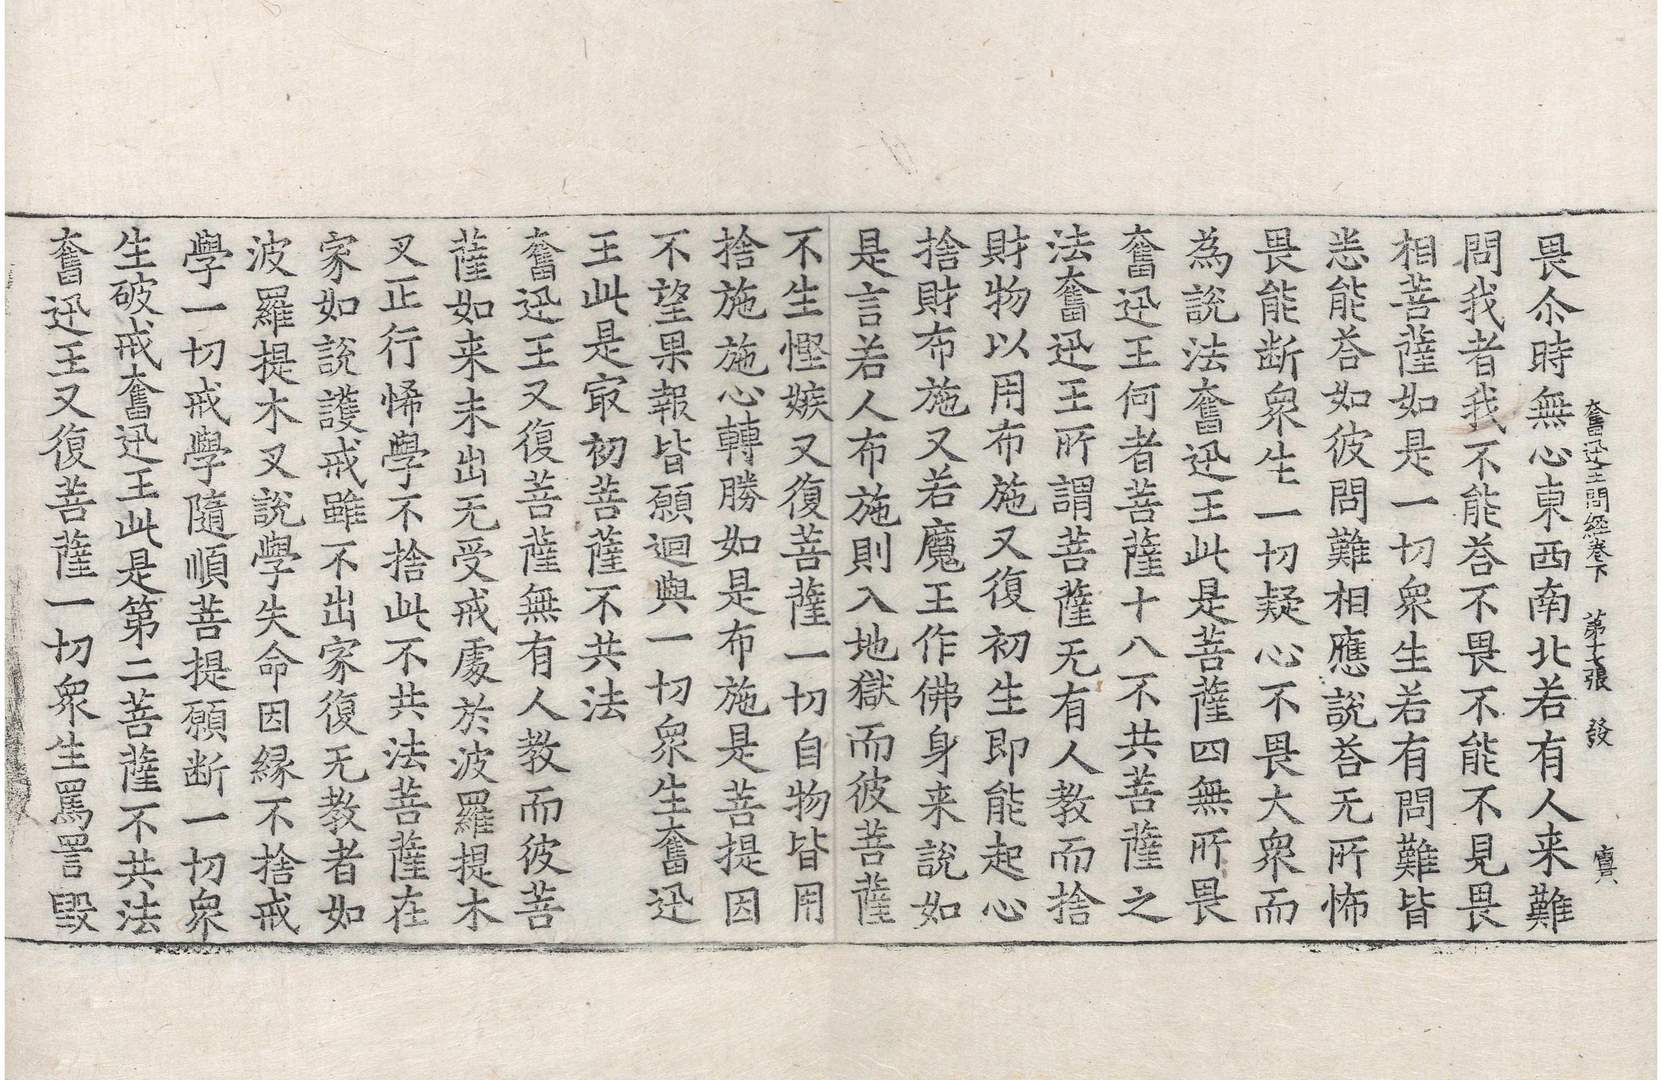 奮迅王問經卷下　第十七張　發　寶
畏尒時無心東西南北若有人来難
問我者我不能荅不畏不能不見畏
相菩薩如是一切衆生若有問難皆
悉能荅如彼問難相應說荅无所怖
畏能断衆生一切疑心不畏大衆而
為說法奮迅王此是菩薩四無所畏
奮迅王何者菩薩十八不共菩薩之
法奮迅王所謂菩薩无有人教而捨
財物以用布施又復初生即能起心
捨財布施又若魔王作佛身来說如
是言若人布施則入地獄而彼菩薩
不生慳嫉又復菩薩一切自物皆用
捨施施心轉勝如是布施是菩提因
不望果報皆願迴與一切衆生奮迅
王此是㝡初菩薩不共法
奮迅王又復菩薩無有人教而彼菩
薩如来未出无受戒處於波羅提木
叉正行悕學不捨此不共法菩薩在
家如說護戒雖不出家復无教者如
波羅提木叉說學失命因緣不捨戒
學一切戒學隨順菩提願断一切衆
生破戒奮迅王此是第二菩薩不共法
奮迅王又復菩薩一切衆生罵詈毀